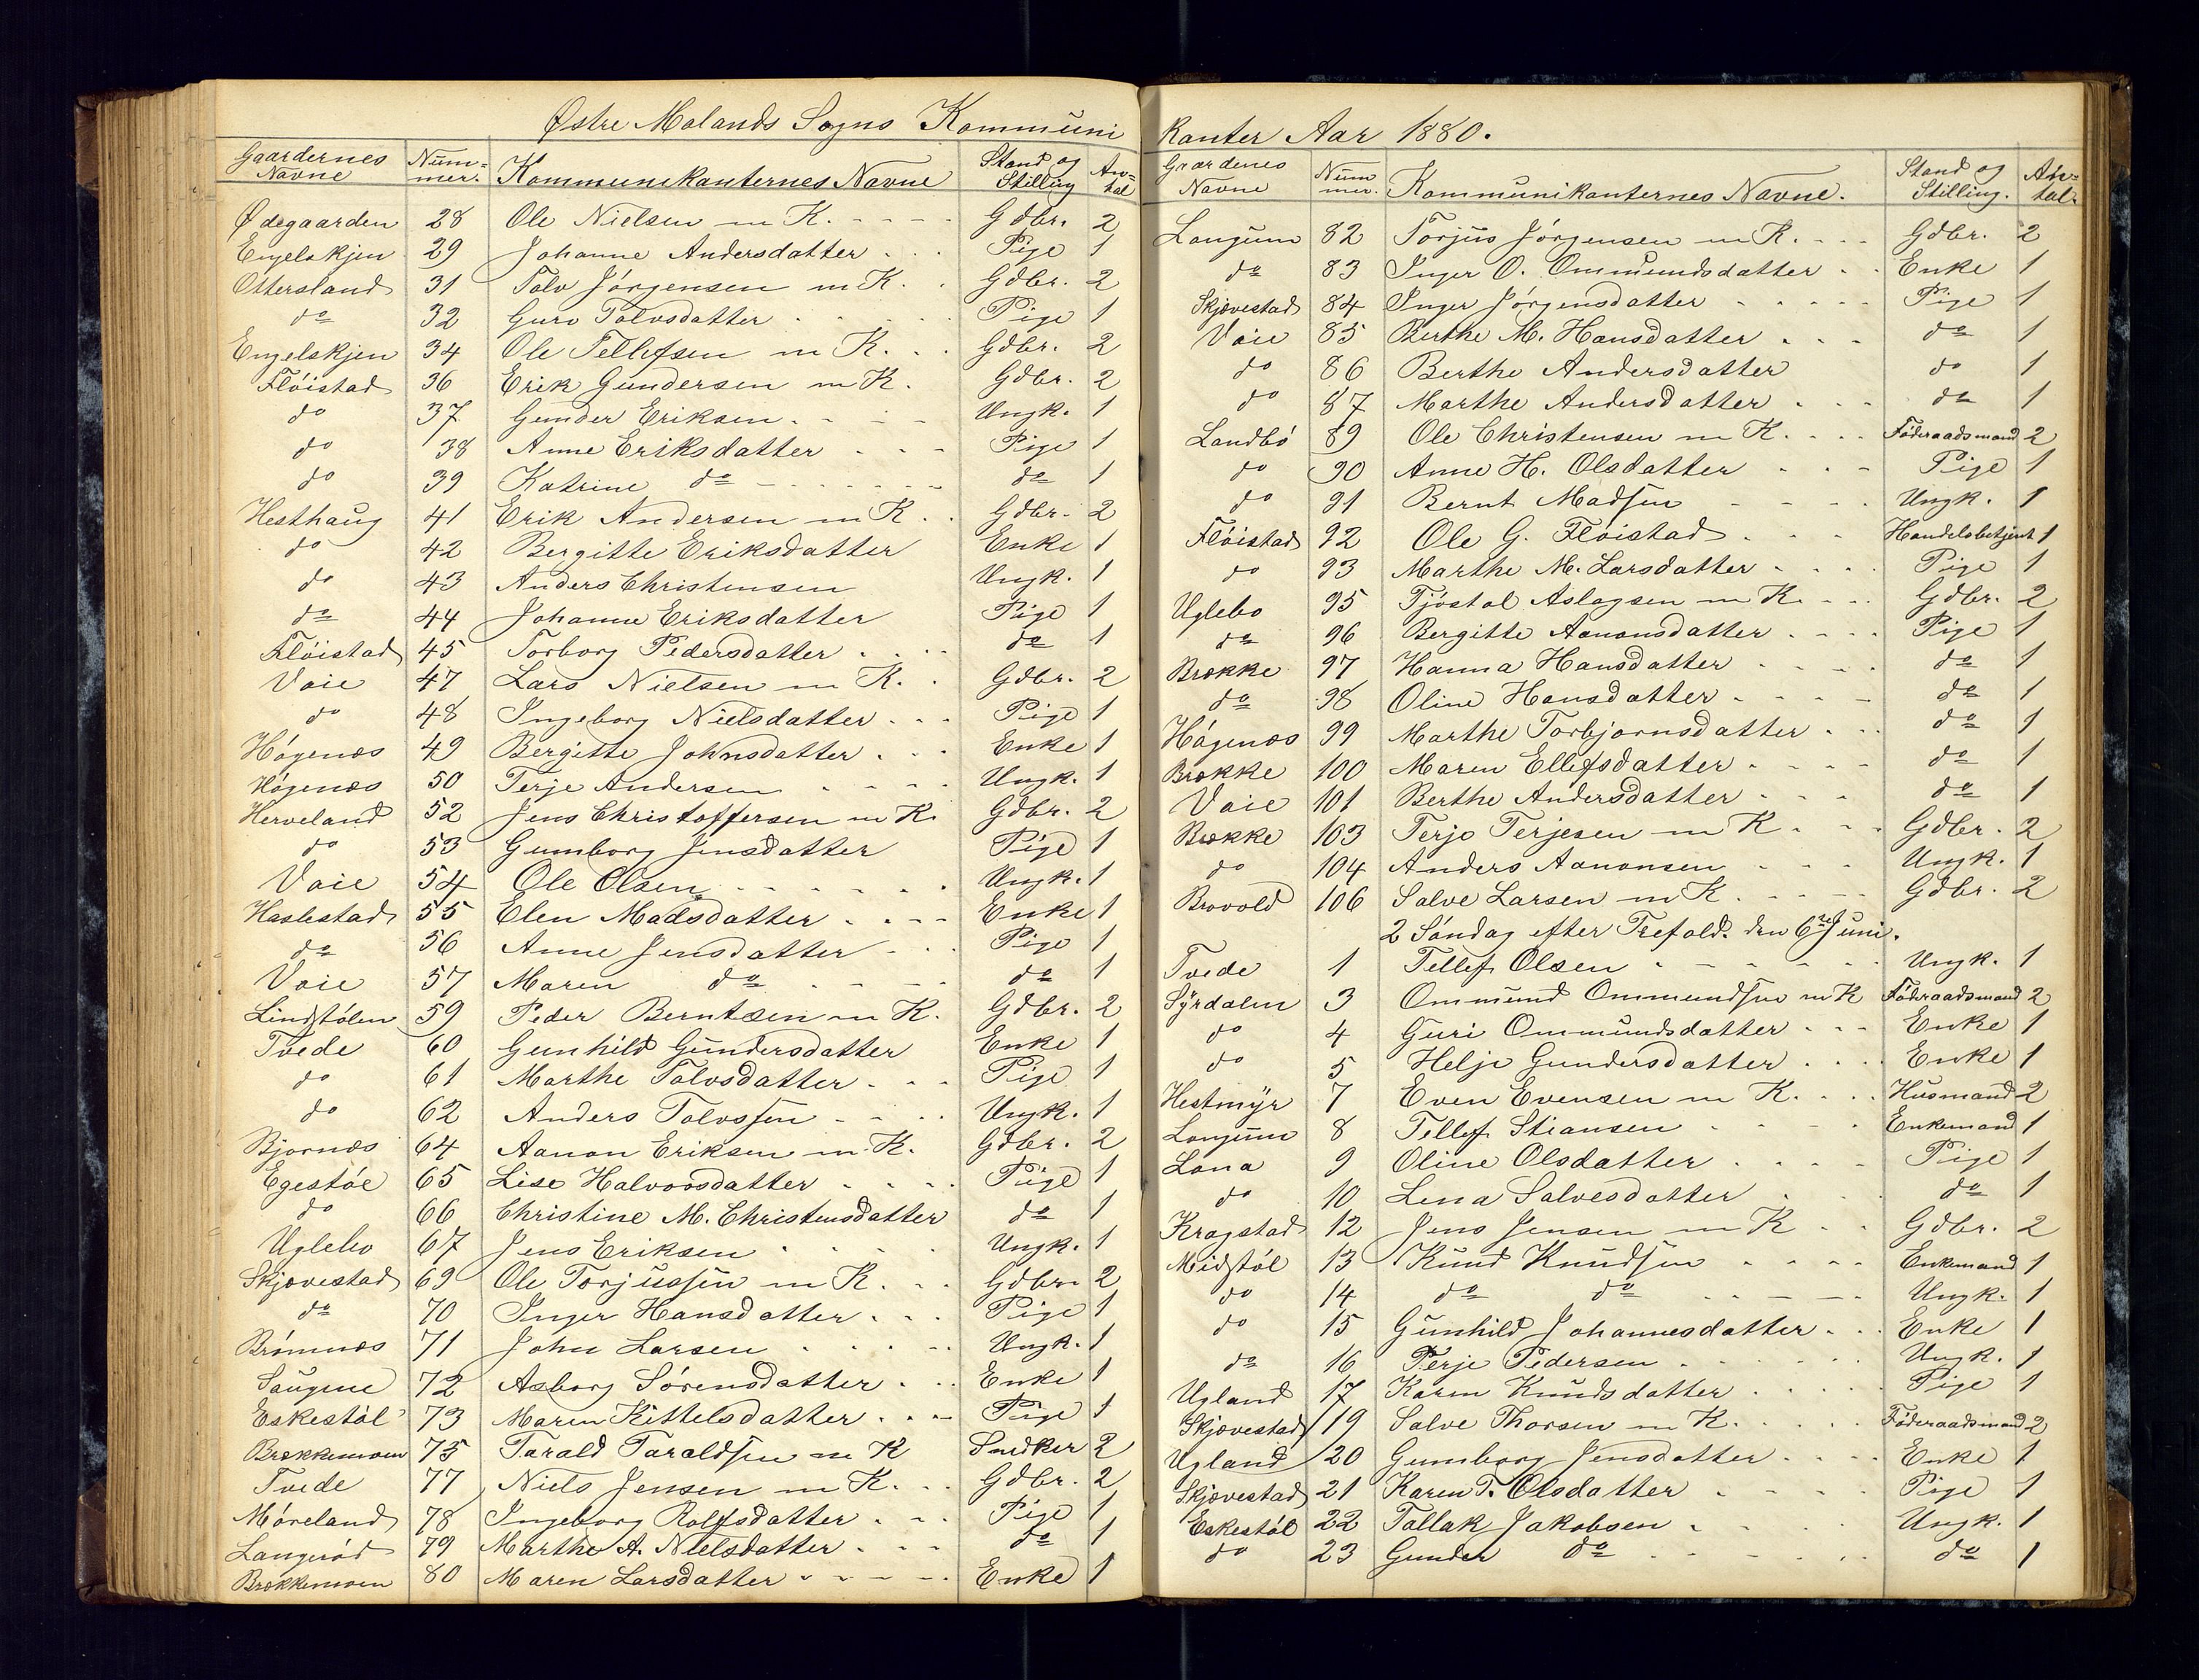 Østre Molands Sogns Kommuni
Gaardernes Navne Num= mer. Kommunikanternes Navne Stand og Stilling An= tal
Ødegaarden 28 Ole Nielsen m K. Gdbr. 2
Engelskjen 29 Johanne Andersdatter Pige 1
Ottersland 31 Tolv Jörgensen m K. Gdbr. 2
do 32 Guro Tolvsdatter Pige 1
Engelskjen 34 Ole Tellefsen m K. Gdbr. 2
Flöistad 36 Erik Gundersen m K. Gdbr. 2
do 37 Gunder Eriksen Ungk. 1
do 38 Anne Eriksdatter Pige 1
do 39 Katrine do do 1
Hesthaug 41 Erik Andersen m K. Gdbr. 2
do 42 Bergitte Eriksdatter Enke 1
do 43 Anders Christensen Ungk. 1
do 44 Johanne Eriksdatter Pige 1
Flöistad 45 Torborg Pedersdatter do 1
Voie 47 Lars Nielsen m K. Gdbr. 2
do 48 Ingeborg Nielsdatter Pige 1
Högenæs 49 Bergitte Johnsdatter Enke 1
Högenæs 50 Terje Andersen Ungk. 1
Herveland 52 Jens Christoffersen m K. Gdbr. 2
do 53 Gumborg Jensdatter Pige 1
Voie 54 Ole Olsen Ungk. 1
Haslestad 55 Elen Madsdatter Enke 1
do 56 Anne Jensdatter Pige 1
Voie 57 Maren do do 1
Lindstölen 59 Peder Berntsen m K. Gdbr. 2
Tvede 60 Gunhild Gundersdatter Enke 1
do 61 Marthe Tolvsdatter Pige 1
do 62 Anders Tolvssen Ungk. 1
Bjornæs 64 Aanon Eriksen m K. Gdbr. 2
Egestöl 65 Lise Halvorsdatter Pige 1
do 66 Christine M. Christensdatter do 1
Uglebo 67 Jens Eriksen Ungk. 1
Skjævestad 69 Ole Torjussen m K. Gdbr. 2
do 70 Inger Hansdatter Pige 1
Brömnæs 71 John Larsen Ungk. 1
Saugene 72 Asborg Sörensdatter Enke 1
Eskestöl 73 Maren Kittelsdatter Pige 1
Brækkemoen 75 Tarald Taraldsen m K Snedker 2
Tvede 77 Niels Jensen m K. Gdbr. 2
Möreland 78 Ingeborg Rolfsdatter Pige 1
Langeröd 79 Marthe A. Nielsdatter do 1
Brækkemoen 80 Maren Larsdatter Enke 1
kanter Aar 1880.
Gaardenes Navne Num mer. Kommunikanternes Navne. Stand og Stilling. An= tal.
Longum 82 Torjus Jörgensen m K. Gdbr. 2
do 83 Inger O. Ommundsdatter Enke 1
Skjævestad 84 Inger Jörgensdatter Pige 1
Voie 85 Berthe M. Hansdatter do 1
do 86 Berthe Andersdatter do 1
do 87 Marthe Andersdatter do 1
Landbö 89 Ole Christensen m K. Föderaadsmand 2
do 90 Anne H. Olsdatter Pige 1
do 91 Bernt Madsen Ungk. 1
Flöistad 92 Ole G. Flöistad Handelsbetjent 1
do 93 Marthe M. Larsdatter Pige 1
Uglebo 95 Tjöstol Aslagsen m K. Gdbr. 2
do 96 Bergitte Aanonsdatter Pige 1
Brække 97 Hanna Hansdatter do 1
do 98 Oline Hansdatter do 1
Högenæs 99 Marthe Torbjornsdatter do 1
Brække 100 Maren Ellefsdatter do 1
Voie 101 Berthe Andersdatter do 1
Brække 103 Terje Terjesen m K. Gdbr. 2
do 104 Anders Aanonsen Ungk. 1
Brovold 106 Salve Larsen m K. Gdbr. 2
2 Söndag efter Trefold. den 6te Juni.
Tvede 1 Tellef Olsen Ungk. 1
Syrdalen 3 Ommund Ommundsen m K Föderaadsmand 2
do 4 Guri Ommundsdatter Enke 1
do 5 Helje Gundersdatter Enke 1
Hestmyr 7 Even Evensen m K. Husmand 2
Longum 8 Tellef Stiansen Enkemand 1
Lona 9 Oline Olsdatter Pige 1
do 10 Lena Salvesdatter do 1
Kragstad 12 Jens Jensen m K Gdbr. 2
Midstöl 13 Knud Knudsen Enkemand 1
do 14 do do Ungk. 1
do 15 Gunhild Johannesdatter Enke 1
do 16 Terje Pedersen Ungk. 1
Ugland 17 Karen Knudsdatter Pige 1
Skjævestad 19 Salve Thorsen m K. Föderaadsmand 2
Ugland 20 Gumborg Jensdatter Enke 1
Skjævestad 21 Karen T. Olsdatter Pige 1
Eskestöl 22 Tallak Jakobsen Ungk. 1
do 23 Gunder do do 1